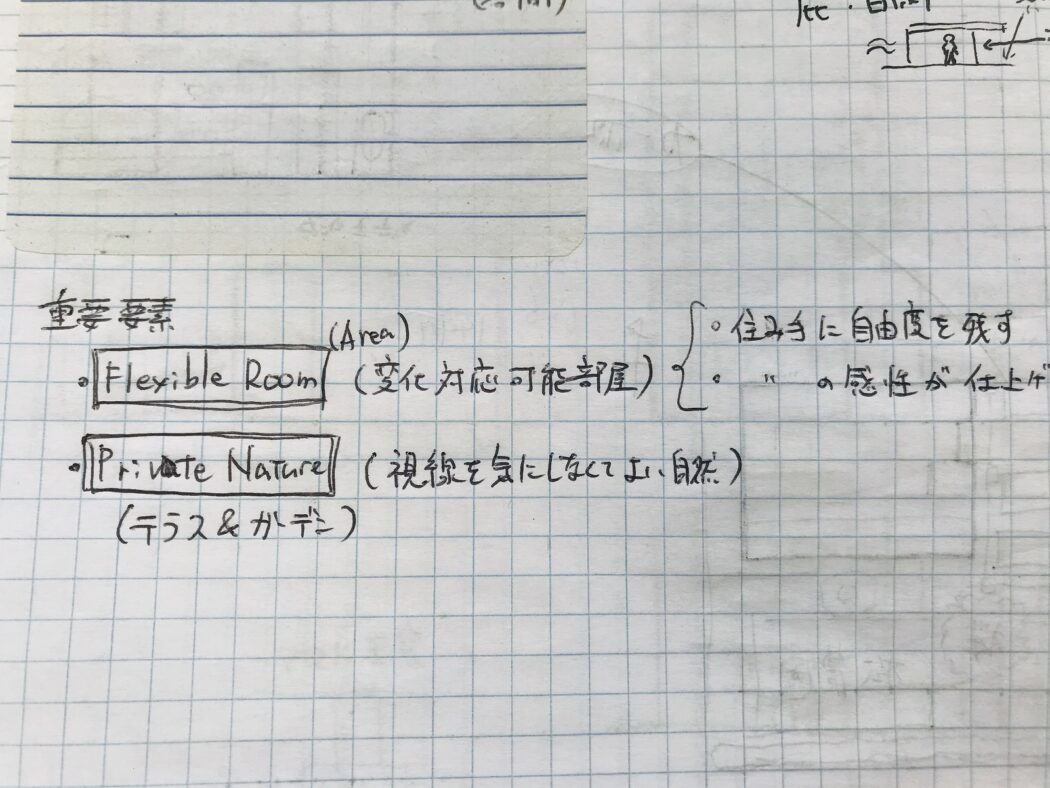 重要要素
(Area)
・Flexible Room (変化対応可能部屋) { 。住み手に自由度を残す
。 〃 の感性が仕上げ
・Private Nature (視線を気にしなくてよい自然)
(テラス&ガーデン)